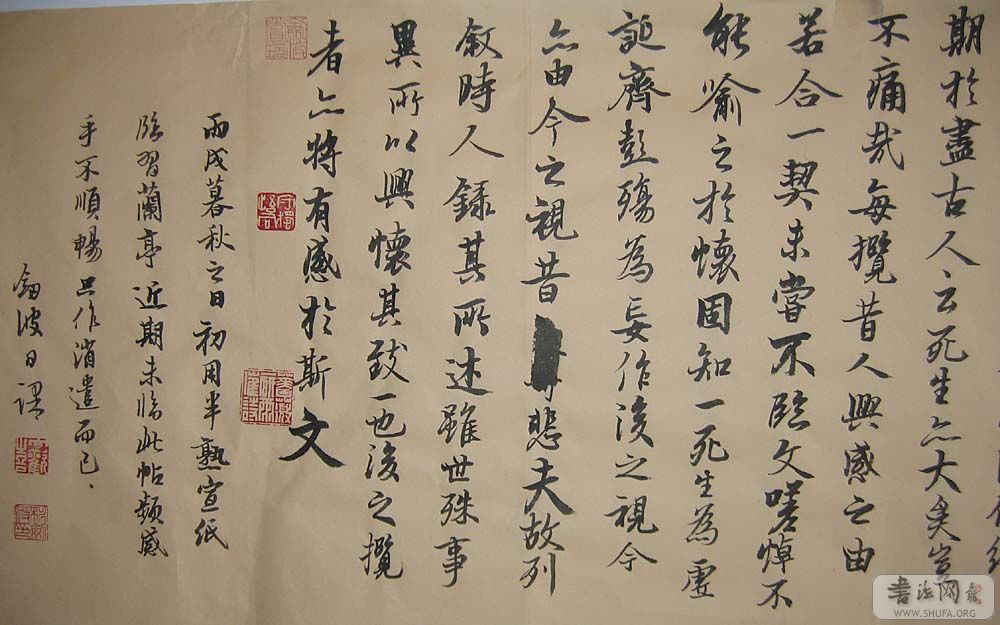 期於盡古人云死生亦大矣豈
不痛哉每攬昔人興感之由
若合一契未嘗不臨文嗟悼不
能喻之於懷固知一死生為虛
誕齊彭殤為妄作後之視今
亦由今之視昔悲夫故列
敘時人錄其所述雖世殊事
異所以興懷其致一也後之攬
者亦將有感於斯文
丙戌暮秋之日初用半熟宣紙
臨習蘭亭近期未臨此帖頗感
手不順暢只作消遣而已.
劍波日課
書法网
WWW.SHUFA.ORG